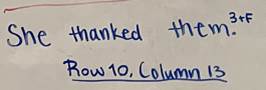 She thanked them.³⁺ᶠ
Row 10, Column 13